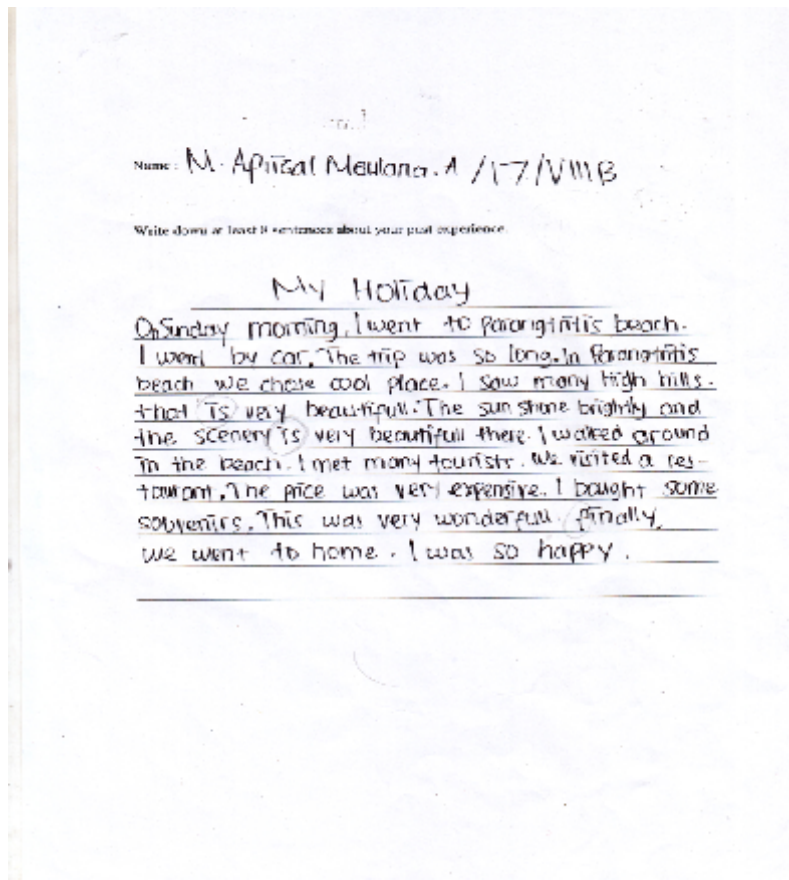 Name : M. Apirsal Meulana. A /17/VIIIB
Write down at least 8 sentences about your past experience.
My Holiday
On Sunday morning, I went to Parangtritis beach.
I went by car. The trip was so long. In Parangtritis
beach we chose cool place. I saw many high hills.
that is very beautifull. The sun shone brightly and
the scenery is very beautifull there. I walked around
in the beach. I met many tourists. We visited a res-
taurant. The price was very expensive. I bought some
souvenirs. This was very wonderfull. finally,
we went to home. I was so happy.